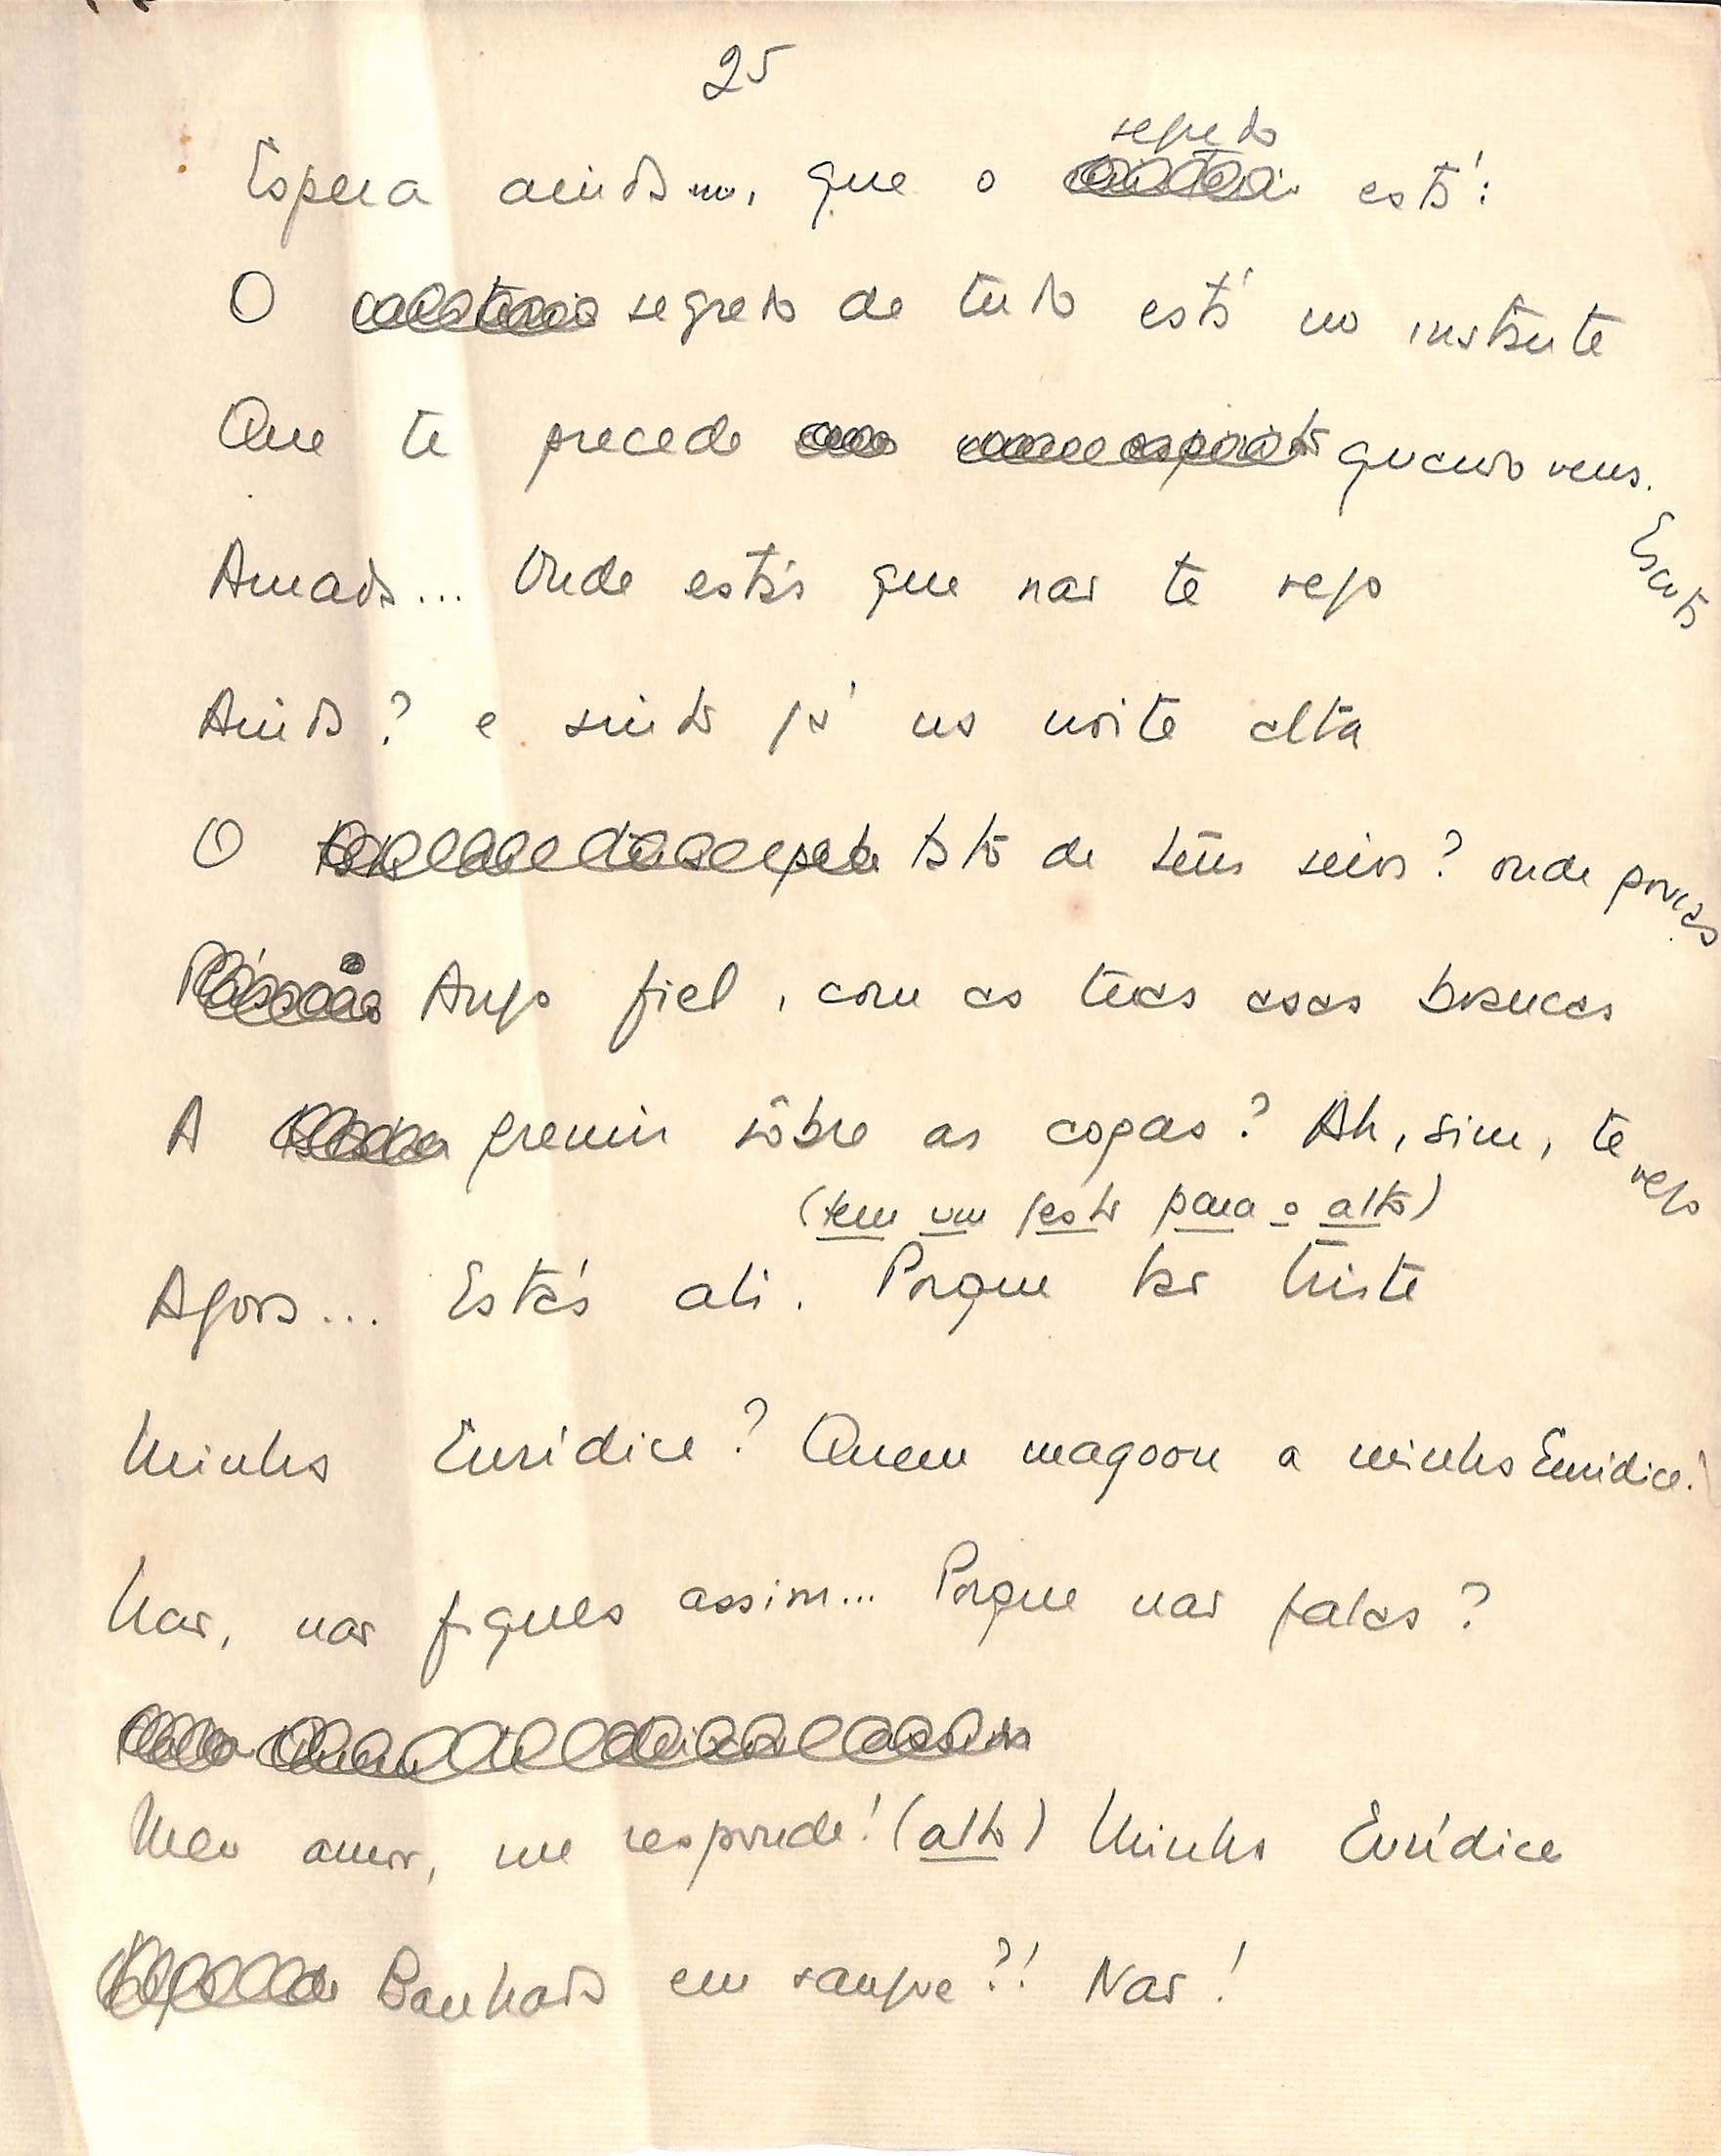 25
segredo
Espera ainda, que o está:
O segredo de tudo está no instante
Que te precede quando vens.
Escuta
Amada... Onde estás que não te vejo
Ainda? e sinto já na noite alta
O tato de teus seios? onde pousas
Anjo fiel, com as tuas asas brancas
A fremir sôbre as copas? Ah, sim, te vejo
(tem um gesto para o alto)
Agora... Estás ali. Porque tão triste
Minha Eurídice? Quem magoou a minha Eurídice?
Não, não fiques assim... Porque não falas?
Meu amor, me responde! (alto) Minha Eurídice
Banhada em sangue?! Não!